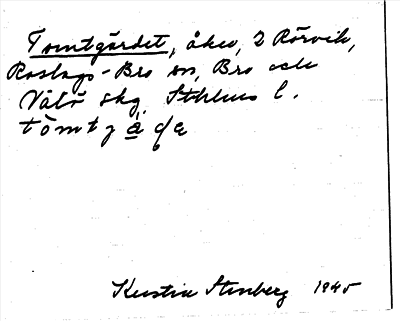 Tomtgärdet, åker, 2 Rörvik,
Roslags-Bro sn, Bro och
Vätö skg, Sthlms l.
tòmtj
Kerstin Stenberg 1945